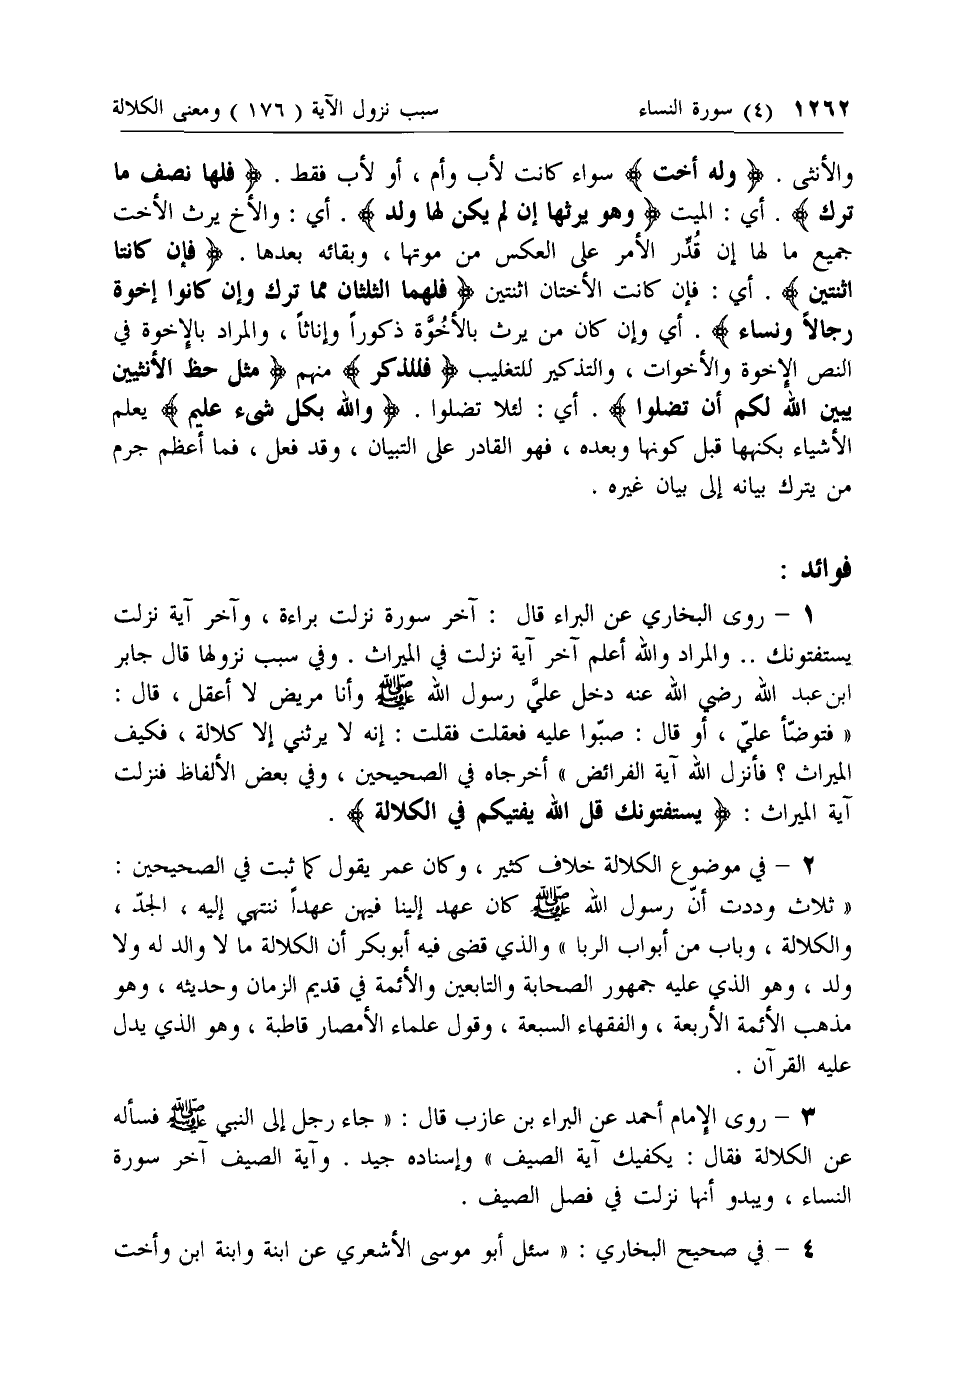 ١٢٦٢ (٤) سورة النساء سبب نزول الآية ( ١٧٦ ) ومعنى الكلالة
والأنثى . ﴿ وله أخت ﴾ سواء كانت لأب وأم ، أو لأب فقط . ﴿ فلها نصف ما
ترك ﴾ . أي : الميت ﴿ وهو يرثها إن لم يكن لها ولد ﴾ . أي : والأخ يرث الأخت
جميع ما لها إن قُدِّر الأمر على العكس من موتها ، وبقائه بعدها . ﴿ فإن كانتا
اثنتين ﴾ . أي : فإن كانت الأختان اثنتين ﴿ فلهما الثلثان مما ترك وإن كانوا إخوة
رجالاً ونساء ﴾ . أي وإن كان من يرث بالأخُوَّة ذكوراً وإناثاً ، والمراد بالإخوة في
النص الإخوة والأخوات ، والتذكير للتغليب ﴿ فللذكر ﴾ منهم ﴿ مثل حظ الأنثيين
يبين الله لكم أن تضلوا ﴾ . أي : لئلا تضلوا . ﴿ والله بكل شيء عليم ﴾ يعلم
الأشياء بكنهها قبل كونها وبعده ، فهو القادر على التبيان ، وقد فعل ، فما أعظم جرم
من يترك بيانه إلى بيان غيره .
فوائد :
١ – روى البخاري عن البراء قال : آخر سورة نزلت براءة ، وآخر آية نزلت
يستفتونك .. والمراد والله أعلم آخر آية نزلت في الميراث . وفي سبب نزولها قال جابر
ابن عبد الله رضي الله عنه دخل عليَّ رسول الله ﷺ وأنا مريض لا أعقل ، قال :
« فتوضّأ عليّ ، أو قال : صبّوا عليه فعقلت فقلت : إنه لا يرثني إلا كلالة ، فكيف
الميراث ؟ فأنزل الله آية الفرائض » أخرجاه في الصحيحين ، وفي بعض الألفاظ فنزلت
آية الميراث : ﴿ يستفتونك قل الله يفتيكم في الكلالة ﴾ .
٢ – في موضوع الكلالة خلاف كثير ، وكان عمر يقول كما ثبت في الصحيحين :
« ثلاث وددت أنّ رسول الله ﷺ كان عهد إلينا فيهن عهداً ننتهي إليه ، الجدّ ،
والكلالة ، وباب من أبواب الربا » والذي قضى فيه أبوبكر أن الكلالة ما لا والد له ولا
ولد ، وهو الذي عليه جمهور الصحابة والتابعين والأئمة في قديم الزمان وحديثه ، وهو
مذهب الأئمة الأربعة ، والفقهاء السبعة ، وقول علماء الأمصار قاطبة ، وهو الذي يدل
عليه القرآن .
٣ – روى الإمام أحمد عن البراء بن عازب قال : « جاء رجل إلى النبي ﷺ فسأله
عن الكلالة فقال : يكفيك آية الصيف » وإسناده جيد . وآية الصيف آخر سورة
النساء ، ويبدو أنها نزلت في فصل الصيف .
٤ – في صحيح البخاري : « سئل أبو موسى الأشعري عن ابنة وابنة ابن وأخت